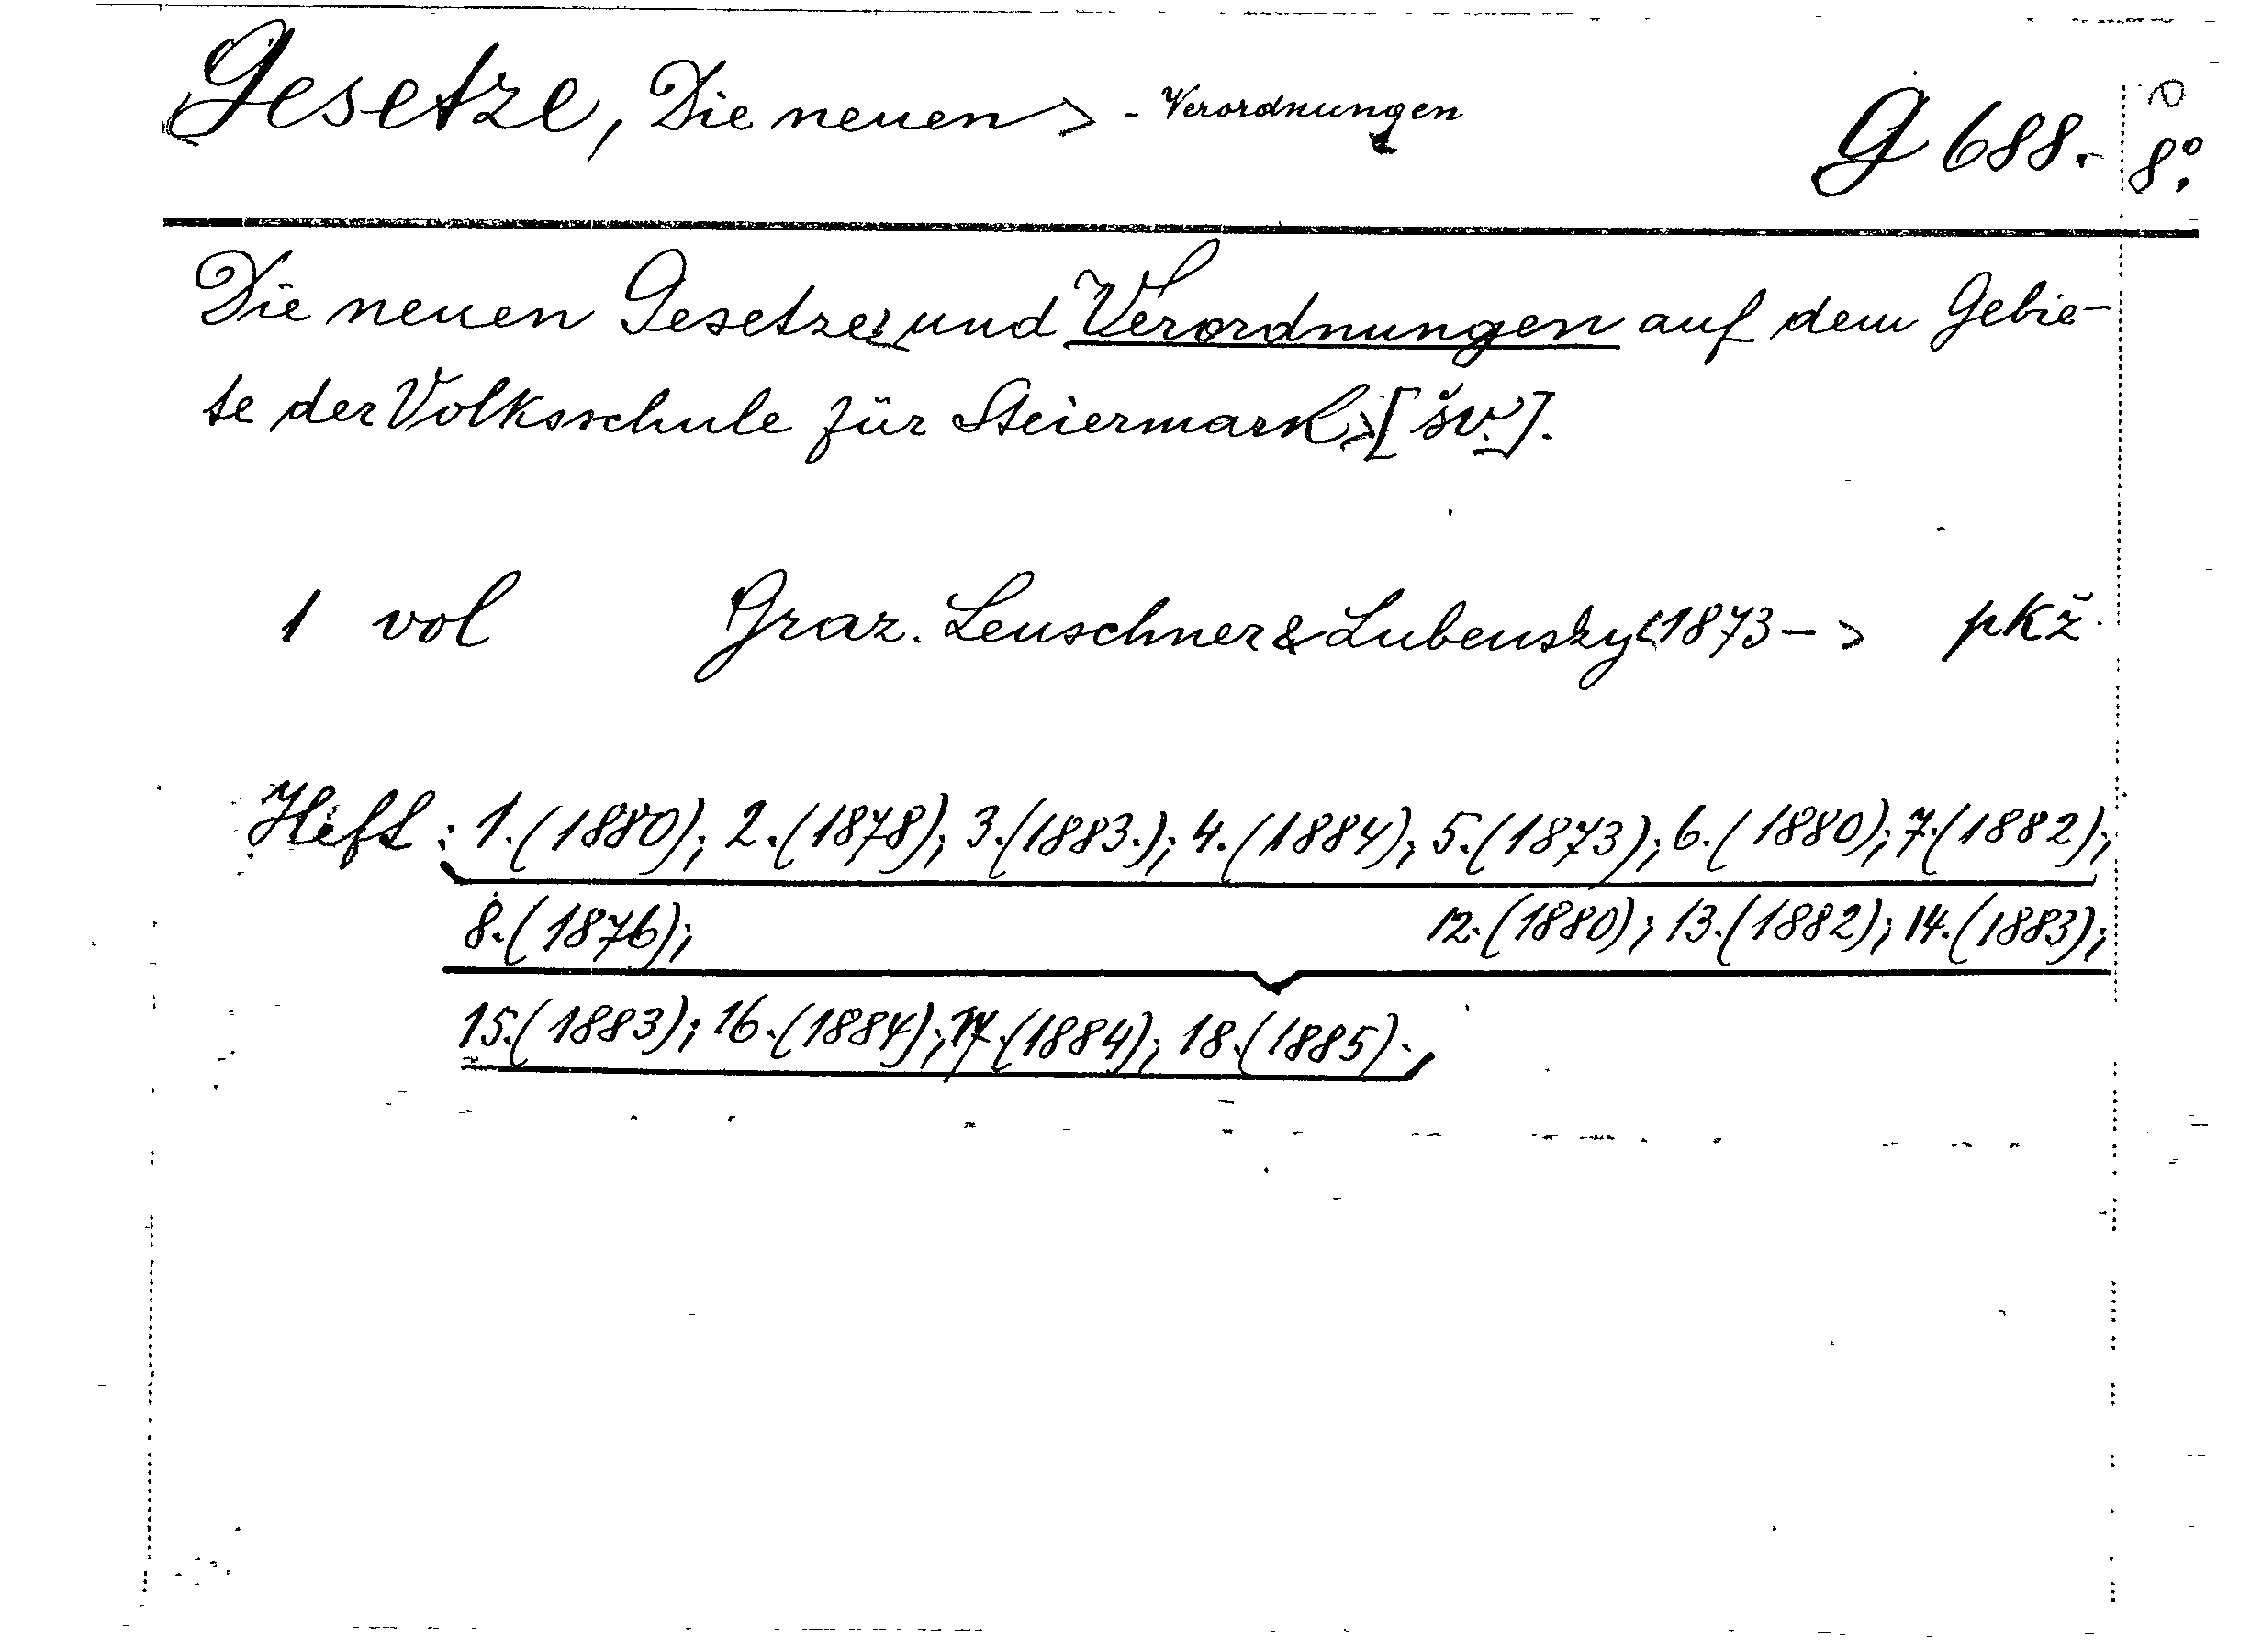 Gesetze, Die neuen > - Verordnungen
G 688. 8º.
Die neuen Gesetze und Verordnungen auf dem Gebie-
te der Volksschule für Steiermark > [šv.].
1 vol Graz. Leuschner & Lubensky <1873 - > pKž
Heft: 1.(1880); 2.(1878); 3.(1883.); 4.(1884); 5.(1873); 6.(1880); 7.(1882);
8.(1876); 12.(1880); 13.(1882); 14.(1883);
15.(1883); 16.(1884); 17.(1884); 18.(1885).